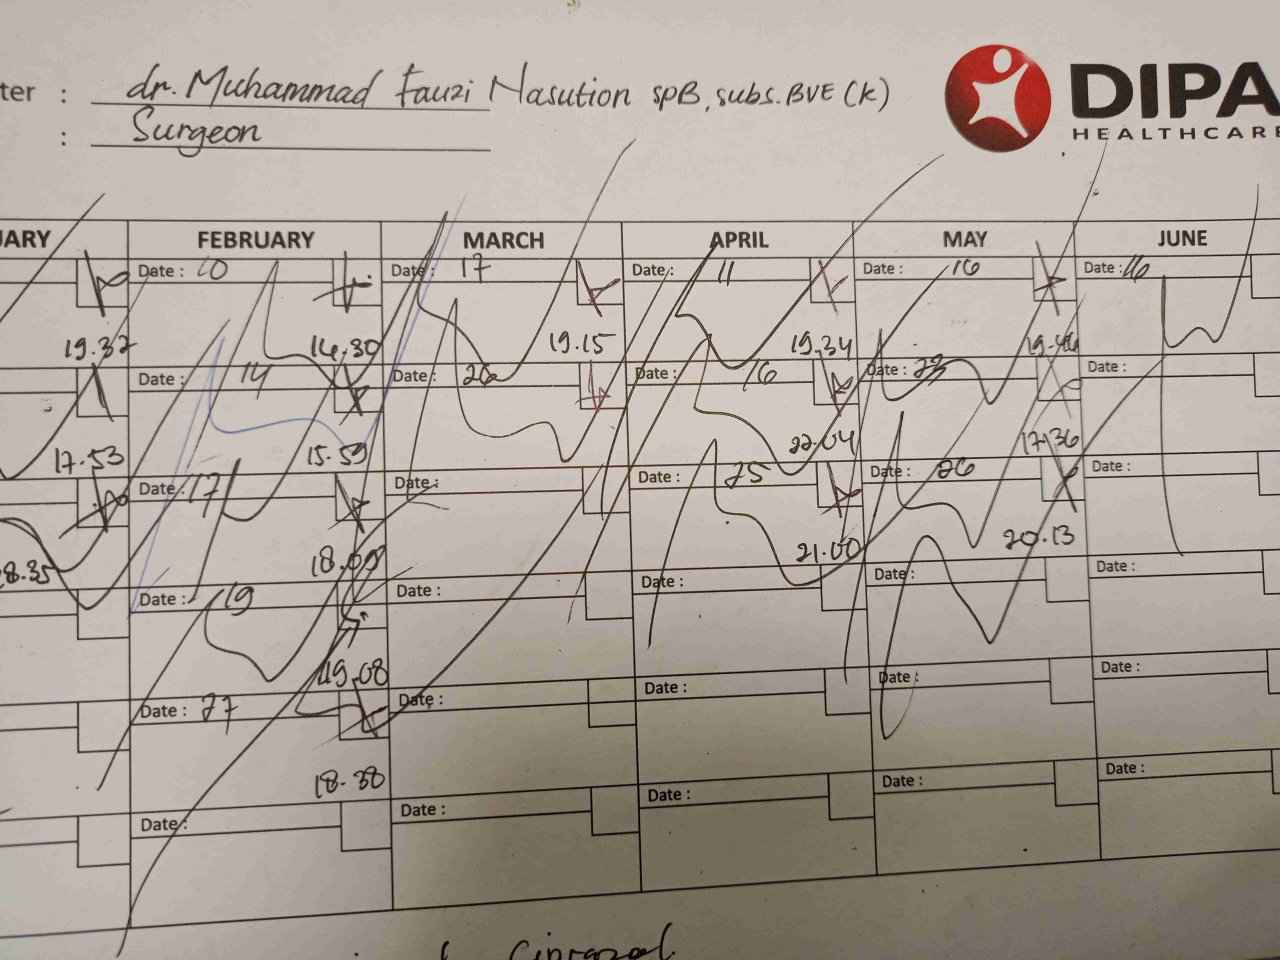 ter : dr. Muhammad Fauzi Nasution SpB, subs. BVE (K)
: Surgeon
DIPA
HEALTHCARE
UARY FEBRUARY MARCH APRIL MAY JUNE
Date : 10 Date : 17 Date : 11 Date : 16 Date : 16
19.37 14.30 19.15 19.34 19.46
Date : 14 Date : 26 Date : 16 Date : 23 Date :
17.53 15.59 22.04 17.36
Date : 17 Date : Date : 25 Date : 26 Date :
18.35 18.09 21.00 20.13
Date : 19 Date : Date : Date : Date :
19.08
Date : 27 Date : Date : Date : Date :
18.38
Date : Date : Date : Date : Date :